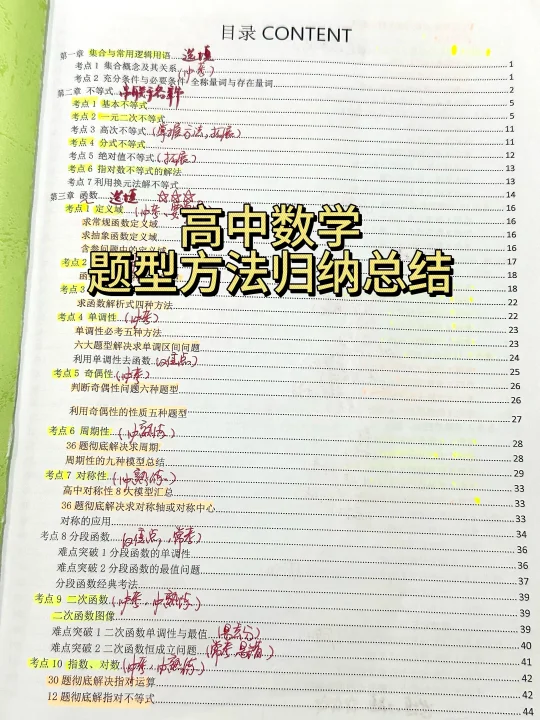 目录 CONTENT
第一章 集合与常用逻辑用语 选填
考点 1 集合概念及其关系 1
考点 2 充分条件与必要条件 全称量词与存在量词 1
第二章 不等式 2
考点 1 基本不等式 5
考点 2 一元二次不等式 5
考点 3 高次不等式(掌握方法,拓展) 11
考点 4 分式不等式 11
考点 5 绝对值不等式(拓展) 12
考点 6 指对数不等式的解法 13
考点 7 利用换元法解不等式 13
第三章 函数 选填 ☆☆☆ 14
考点 1 定义域 16
求常规函数定义域 16
求抽象函数定义域 16
含参问题中的定义域 16
高中数学
题型方法归纳总结
考点 2 17
函 18
考点 3 18
求函数解析式四种方法 22
考点 4 单调性(必考) 22
单调性必考五种方法 23
六大题型解决求单调区间问题 23
利用单调性去函数 24
考点 5 奇偶性(必考) 25
判断奇偶性问题六种题型 26
26
利用奇偶性的性质五种题型 27
考点 6 周期性 28
36 题彻底解决求周期 28
周期性的九种模型总结 29
考点 7 对称性 33
高中对称性 8 大模型汇总 33
36 题彻底解决求对称轴或对称中心 33
对称的应用 34
考点 8 分段函数 36
难点突破 1 分段函数的单调性 36
难点突破 2 分段函数的最值问题 37
分段函数经典考法 39
考点 9 二次函数 39
二次函数图像 39
难点突破 1 二次函数单调性与最值 40
难点突破 2 二次函数恒成立问题 41
考点 10 指数、对数 42
30 题彻底解决指对运算 42
12 题彻底解指对不等式 44